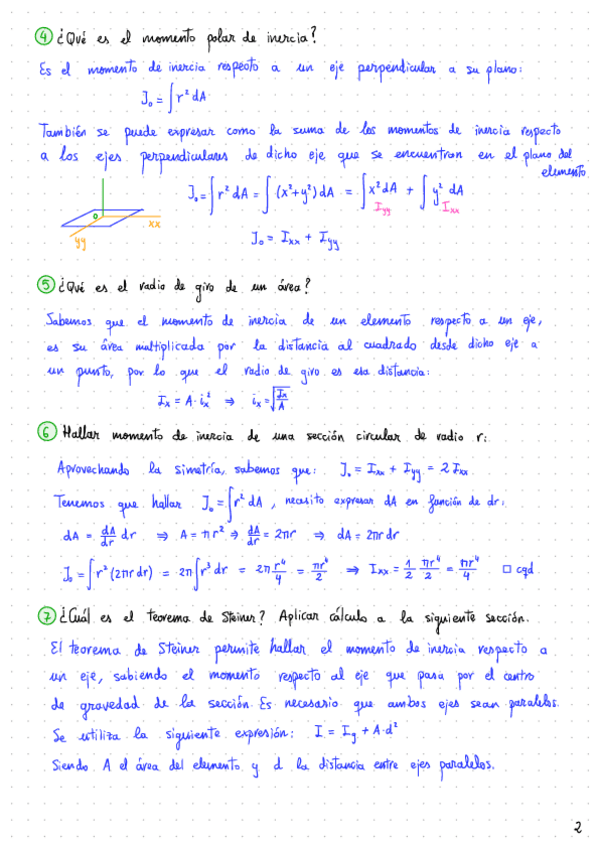 ④ ¿Qué es el momento polar de inercia?
Es el momento de inercia respecto a un eje perpendicular a su plano:
J₀ = ∫ r² dA
También se puede expresar como la suma de los momentos de inercia respecto
a los ejes perpendiculares de dicho eje que se encuentran en el plano del
elemento
J₀ = ∫ r² dA = ∫ (x²+y²) dA = ∫ x² dA + ∫ y² dA
Iyy Ixx
0 xx
yy
J₀ = Ixx + Iyy
⑤ ¿Qué es el radio de giro de un área?
Sabemos que el momento de inercia de un elemento respecto a un eje,
es su área multiplicada por la distancia al cuadrado desde dicho eje a
un punto, por lo que el radio de giro es esa distancia:
Ix = A · ix² ⇒ ix = √(Ix/A)
⑥ Hallar momento de inercia de una sección circular de radio r:
Aprovechando la simetría, sabemos que: J₀ = Ixx + Iyy = 2 Ixx.
Tenemos que hallar J₀ = ∫ r² dA, necesito expresar dA en función de dr:
dA = dA/dr dr ⇒ A = πr² ⇒ dA/dr = 2πr ⇒ dA = 2πr dr
J₀ = ∫ r² (2πr dr) = 2π ∫ r³ dr = 2π r⁴/4 = πr⁴/2 ⇒ Ixx = 1/2 πr⁴/2 = πr⁴/4 □ cqd
⑦ ¿Cuál es el teorema de Steiner? Aplicar cálculo a la siguiente sección.
El teorema de Steiner permite hallar el momento de inercia respecto a
un eje, sabiendo el momento respecto al eje que pasa por el centro
de gravedad de la sección. Es necesario que ambos ejes sean paralelos.
Se utiliza la siguiente expresión: I = Ig + A·d²
Siendo A el área del elemento y d la distancia entre ejes paralelos.
2